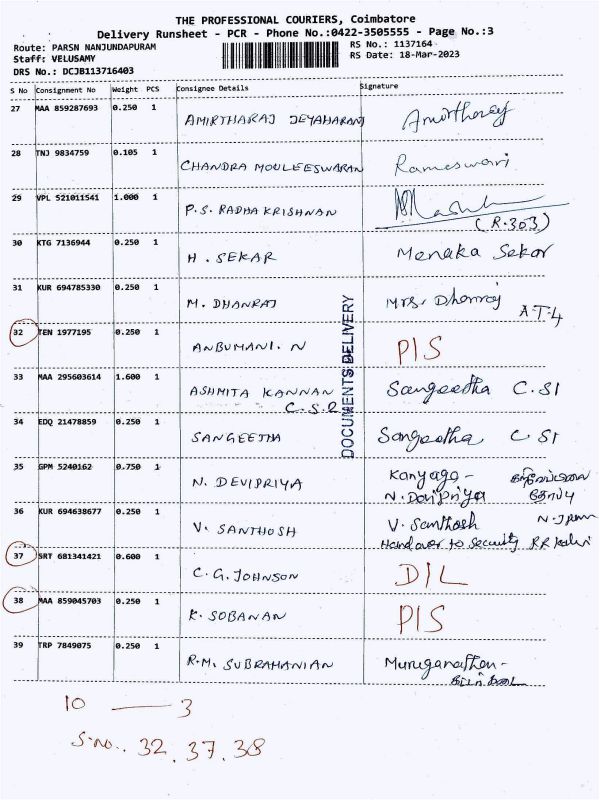 THE PROFESSIONAL COURIERS, Coimbatore
Delivery Runsheet - PCR - Phone No.:0422-3505555 - Page No.:3
Route: PARSN NANJUNDAPURAM RS No.: 1137164
Staff: VELUSAMY RS Date: 18-Mar-2023
DRS No.: DCJB113716403
S No Consignment No Weight PCS Consignee Details Signature
27 MAA 859287693 0.250 1
AMIRTHARAJ JEYAHARAN
28 TNJ 9834759 0.105 1
CHANDRA MOULEESWARAN Rameswari
29 VPL 521011541 1.000 1
P.S. RADHAKRISHNAN
(R.303)
30 KTG 7136944 0.250 1
H. SEKAR Menaka Sekar
31 KUR 694785330 0.250 1
M. DHANRAJ Mrs. Dhanraj
A.T.4
DOCUMENTS DELIVERY
32 TEN 1977195 0.250 1
ANBUMANI. N PIS
33 MAA 295603614 1.600 1
ASHMITA KANNAN Sangeetha C.SI
34 EDQ 21478859 0.250 1
SANGEETHA Sangeetha C SI
35 GPM 5240162 0.750 1
N. DEVIPRIYA N. Devipriya
36 KUR 694638677 0.250 1
V. SANTHOSH V. Santhosh
Handover to Security
37 SRT 681341421 0.600 1
C.G. JOHNSON DIL
38 MAA 859045703 0.250 1
K. SOBANAN PIS
39 TRP 7849075 0.250 1
R.M. SUBRAHANIAN
10 — 3
S.no.. 32, 37, 38